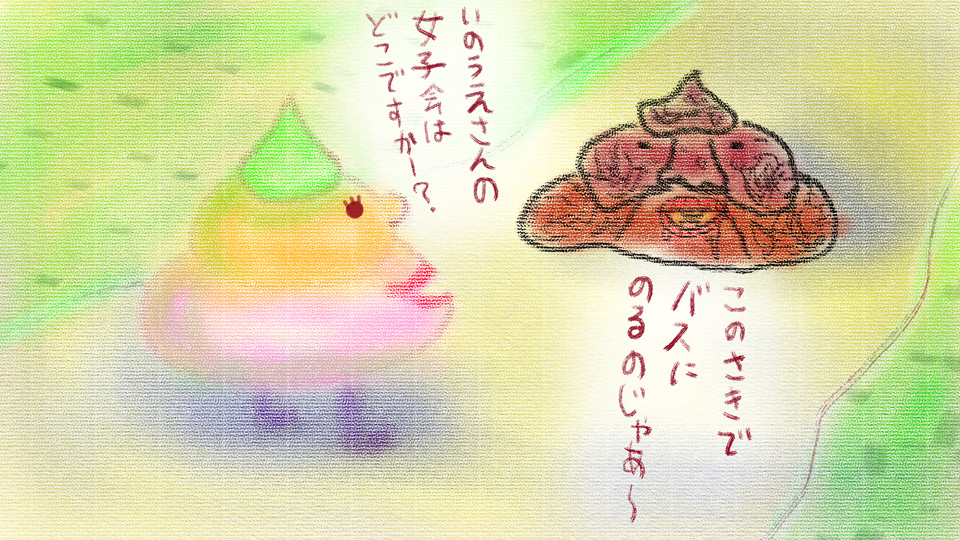 いのうえさんの
女子会は
どこですかー？
このさきで
バスに
のるのじゃあ〜